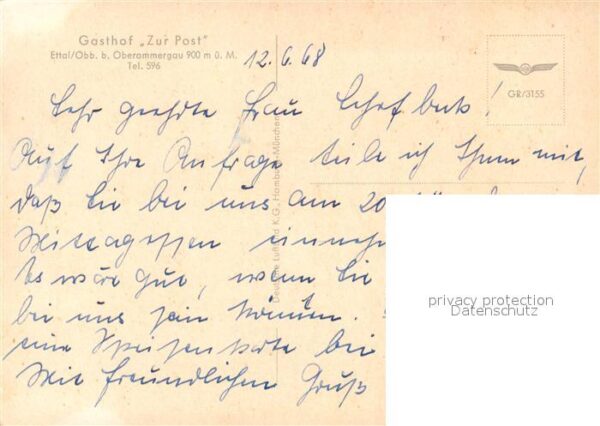 Gasthof „Zur Post"
Ettal/Obb. b. Oberammergau 900 m ü. M.
Tel. 596
12.6.68
GR/3155
Sehr geehrte Frau
Auf Ihre Anfrage teile ich Ihnen mit,
daß Sie bei uns am 20.
Mittagessen
Es wäre gut, wenn Sie
bei uns sein könnten.
eine Speisenkarte bei
Mit freundlichen Gruß
Deutsche Luftbild K.G. Hamburg München
privacy protection
Datenschutz